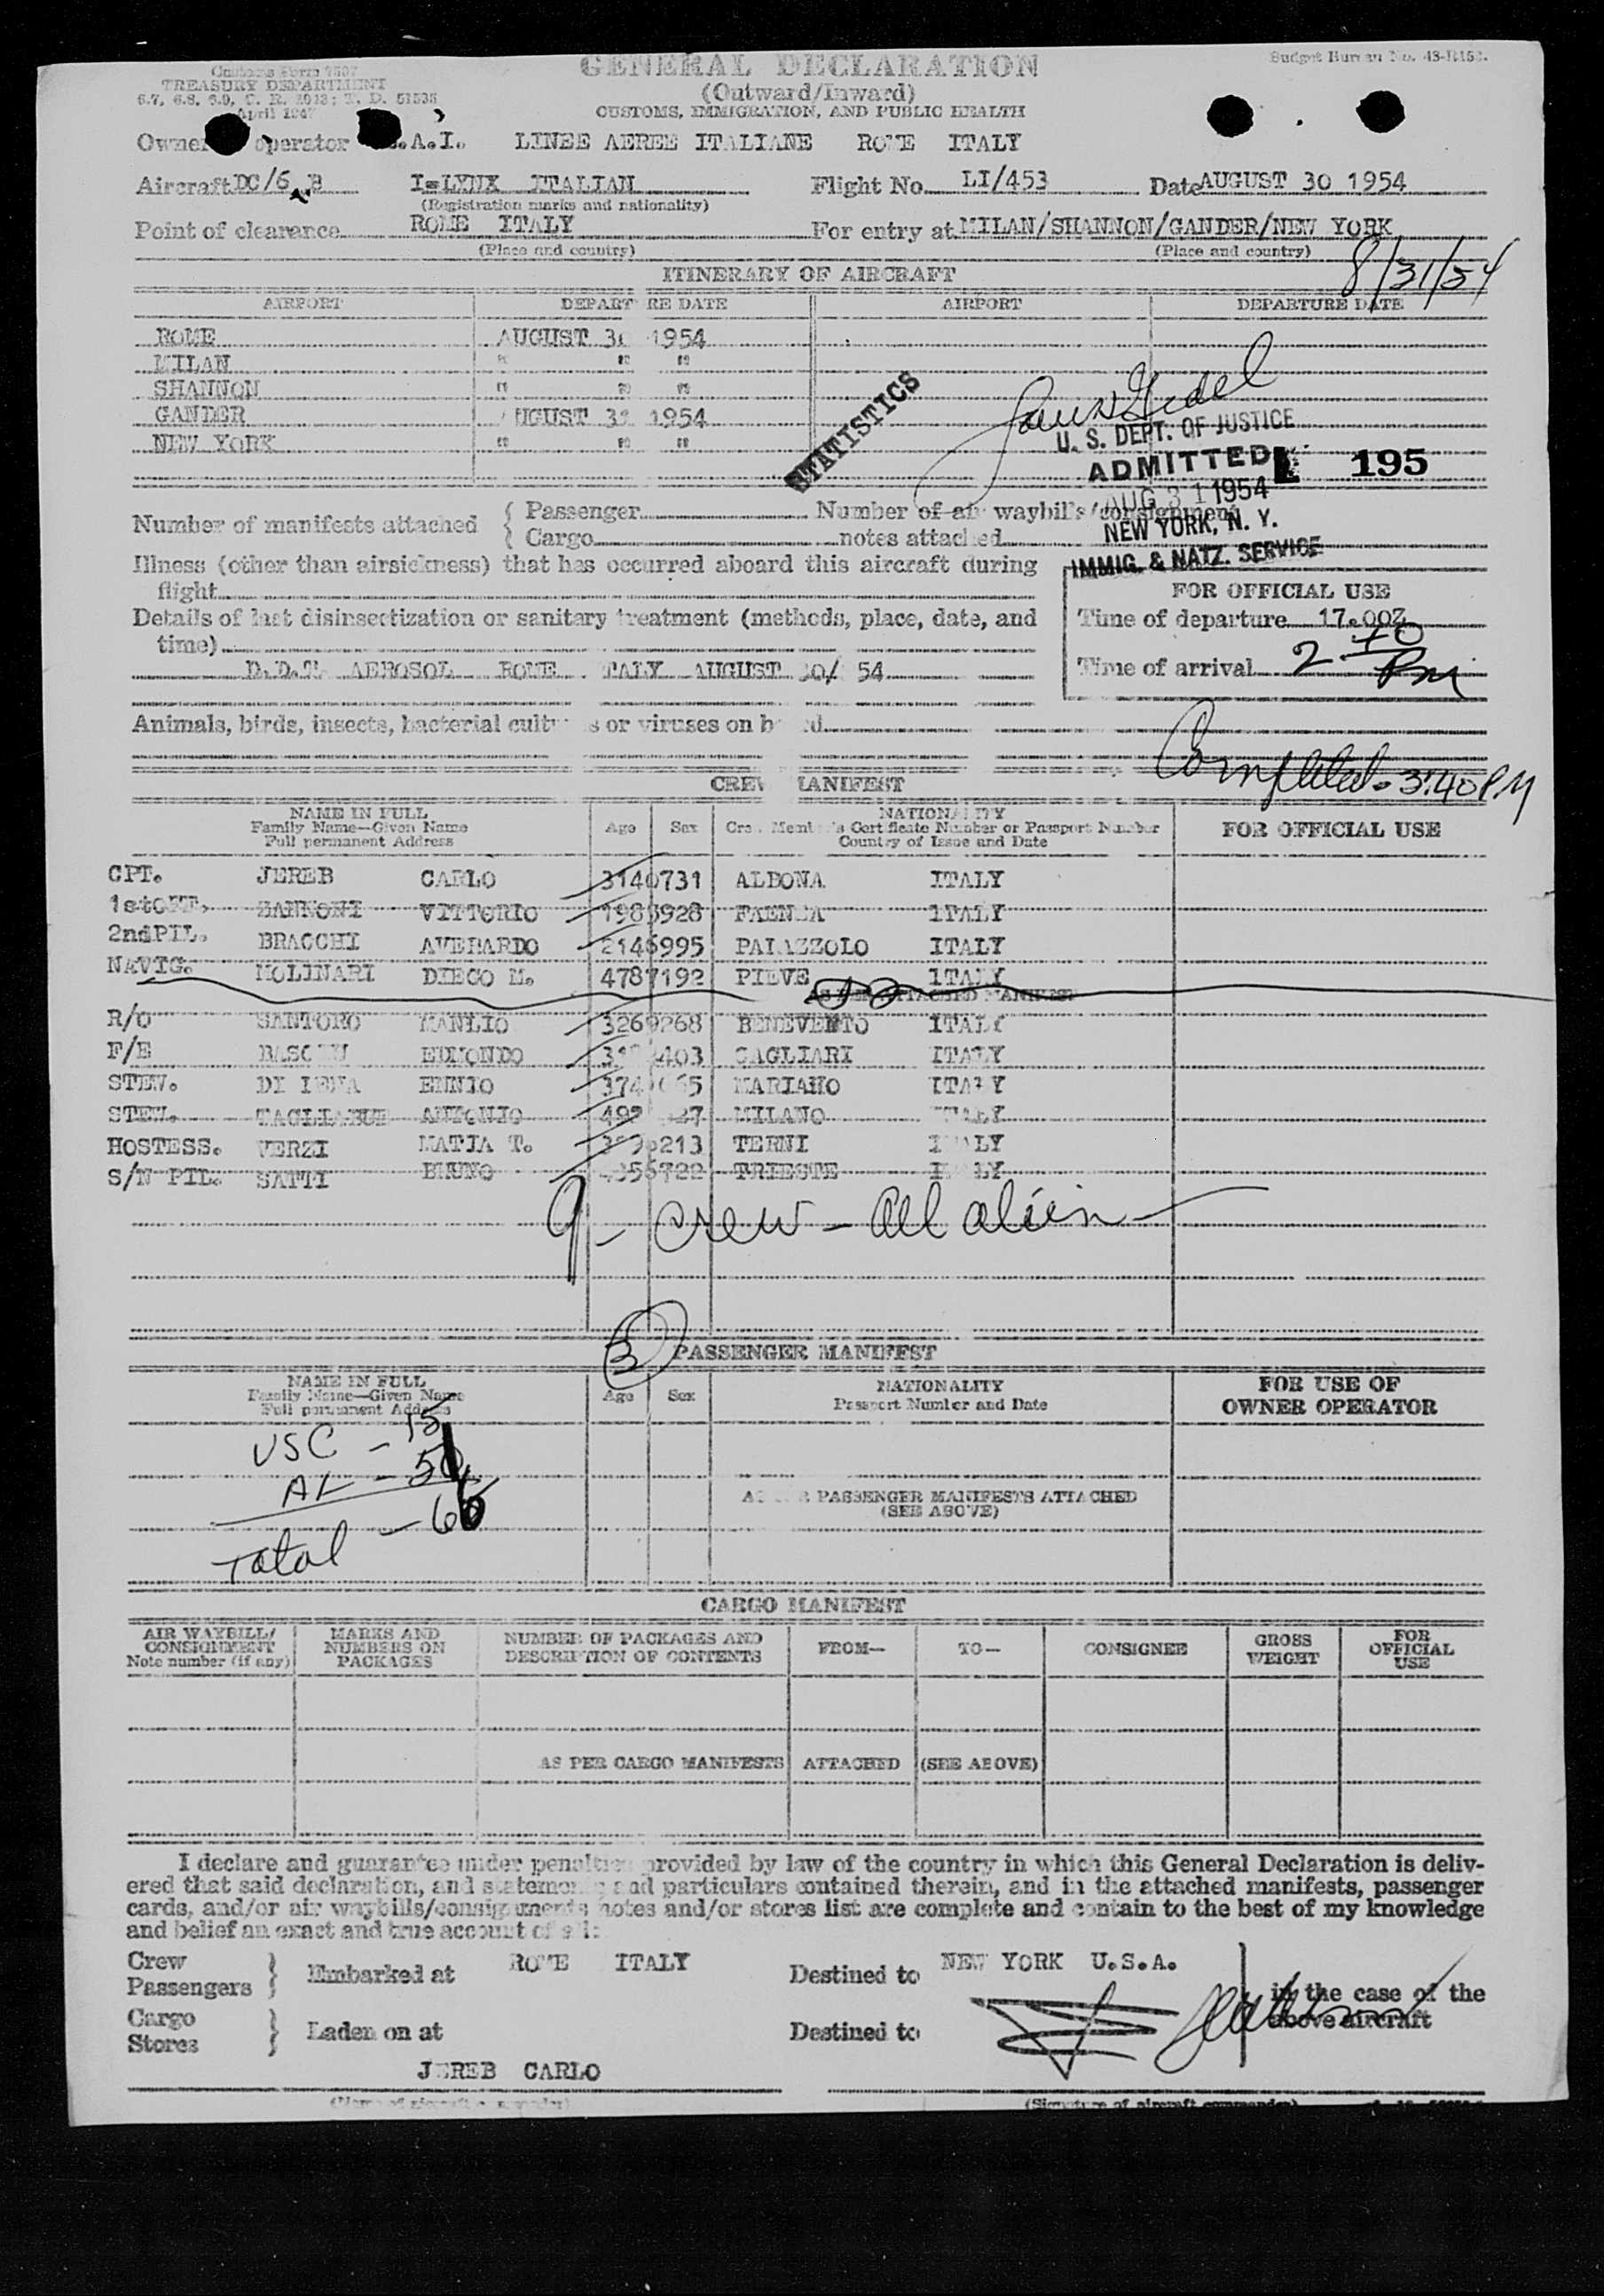 Customs Form 7507
TREASURY DEPARTMENT
April 1947
GENERAL DECLARATION
(Outward/Inward)
CUSTOMS, IMMIGRATION, AND PUBLIC HEALTH
Budget Bureau No.
operator .A.I. LINEE AEREE ITALIANE ROME ITALY
Aircraft DC/6 B I-LYNX ITALIAN Flight No. LI/453 Date AUGUST 30 1954
(Registration marks and nationality)
Point of clearance ROME ITALY For entry at MILAN/SHANNON/GANDER/NEW YORK
(Place and country) (Place and country)
8/31/54
ITINERARY OF AIRCRAFT
AIRPORT DEPART RE DATE AIRPORT DEPARTURE DATE
ROME AUGUST 30 1954
MILAN " " "
SHANNON " " "
GANDER UGUST 31 1954
NEW YORK " " "
STATISTICS
U. S. DEPT. OF JUSTICE
ADMITTED 195
AUG 31 1954
NEW YORK, N. Y.
IMMIG. & NATZ. SERVICE
Number of manifests attached { Passenger Number of air waybills/consignment
{ Cargo notes attached
Illness (other than airsickness) that has occurred aboard this aircraft during
flight
Details of last disinsectization or sanitary treatment (methods, place, date, and
time)
D.D.T. AEROSOL ROME TALY AUGUST 30/ 54
FOR OFFICIAL USE
Time of departure 17.00Z
Time of arrival 2 10 PM
Animals, birds, insects, bacterial cult s or viruses on b d
Completed 3:40 PM
CREW MANIFEST
NAME IN FULL
Family Name—Given Name
Full permanent Address
Age Sex
NATIONALITY
Crew Member's Certificate Number or Passport Number
Country of Issue and Date
FOR OFFICIAL USE
CPT. JEREB CARLO 3140731 ALBONA ITALY
1stOFF. ZANNONI VITTORIO 1983928 FAENZA ITALY
2ndPIL. BRACCHI AVERARDO 2146995 PALAZZOLO ITALY
NAVIG. MOLINARI DIEGO M. 4787192 PIEVE ITALY
AS PER ATTACHED MANIFEST
R/O SANTORO MANLIO 3269268 BENEVENTO ITALY
F/E EDMONDO 403 CAGLIARI ITALY
STEW. DI ENNIO MARIANO ITALY
STEW. TAGLIABUE ANTONIO MILANO
HOSTESS. VERZI MATJA T. 213 TERNI I ALY
S/N PIL. SATTI BRUNO TRIESTE I LY
9 - crew - all alien
3
PASSENGER MANIFEST
NAME IN FULL
Family Name—Given Name
Full permanent Address
Age Sex
NATIONALITY
Passport Number and Date
FOR USE OF
OWNER OPERATOR
USC - 15
AL - 51
Total - 66
AS PER PASSENGER MANIFESTS ATTACHED
(SEE ABOVE)
CARGO MANIFEST
AIR WAYBILL/
CONSIGNMENT
Note number (if any)
MARKS AND
NUMBERS ON
PACKAGES
NUMBER OF PACKAGES AND
DESCRIPTION OF CONTENTS
FROM— TO— CONSIGNEE
GROSS
WEIGHT
FOR
OFFICIAL
USE
AS PER CARGO MANIFESTS ATTACHED (SEE ABOVE)
I declare and guarantee under penalties provided by law of the country in which this General Declaration is deliv-
ered that said declaration, and statements and particulars contained therein, and in the attached manifests, passenger
cards, and/or air waybills/consignments notes and/or stores list are complete and contain to the best of my knowledge
and belief an exact and true account of all:
Crew
Passengers } Embarked at ROME ITALY Destined to NEW YORK U.S.A. } in the case of the
above aircraft
Cargo
Stores } Laden on at Destined to
JEREB CARLO
(Signature of aircraft commander)